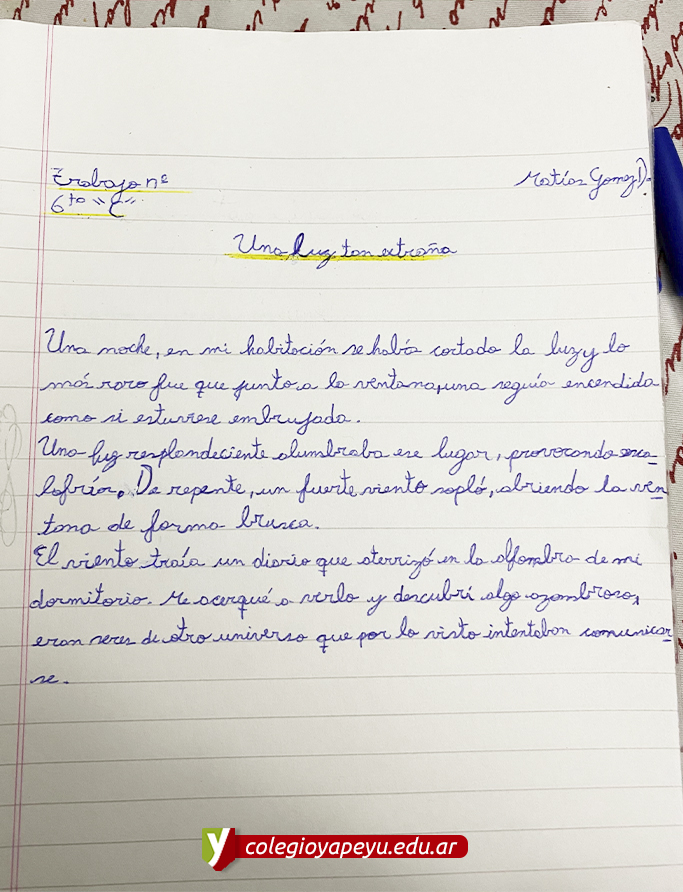 Trabajo nº
Matías Gomez D.
6to "C"
Una luz tan extraña
Una noche, en mi habitación se había cortado la luz y lo
más raro fue que junto a la ventana, una seguía encendida
como si estuviese embrujada.
Una luz resplandeciente alumbraba ese lugar, provocando esca-
lofríos. De repente, un fuerte viento sopló, abriendo la ven-
tana de forma brusca.
El viento traía un diario que aterrizó en la alfombra de mi
dormitorio. Me acerqué a verlo y descubrí algo azombroso,
eran seres de otro universo que por lo visto intentaban comunicar-
se.
y colegioyapeyu.edu.ar